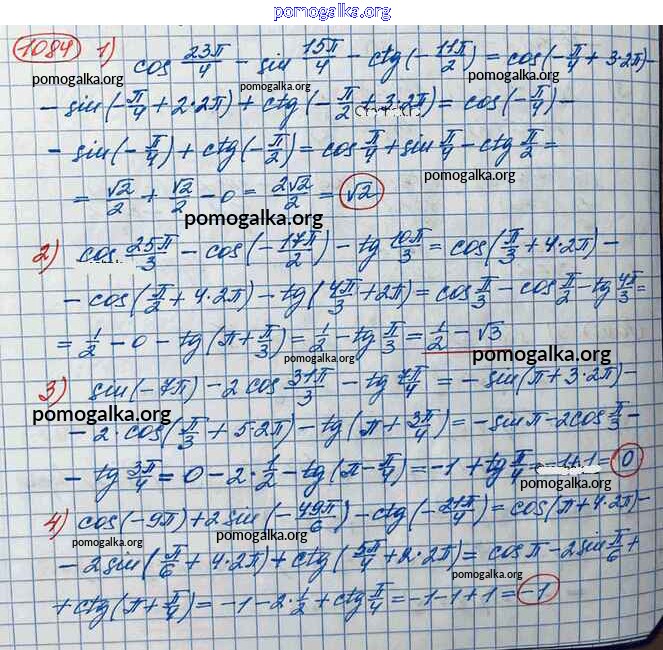 pomogalka.org
1084 1) cos 23π/4 - sin 15π/4 - ctg(-11π/2) = cos(-π/4 + 3·2π)-
pomogalka.org pomogalka.org pomogalka.org
- sin(-π/4 + 2·2π) + ctg(-π/2 + 3·2π) = cos(-π/4) -
- sin(-π/4) + ctg(-π/2) = cos π/4 + sin π/4 - ctg π/2 =
pomogalka.org
= √2/2 + √2/2 - 0 = 2√2/2 = √2
pomogalka.org
2) cos 25π/3 - cos(-17π/2) - tg 10π/3 = cos(π/3 + 4·2π) -
- cos(π/2 + 4·2π) - tg(4π/3 + 2π) = cos π/3 - cos π/2 - tg 4π/3 =
= 1/2 - 0 - tg(π + π/3) = 1/2 - tg π/3 = 1/2 - √3
pomogalka.org pomogalka.org
3) sin(-7π) - 2 cos 31π/3 - tg 7π/4 = - sin(π + 3·2π) -
pomogalka.org
- 2·cos(π/3 + 5·2π) - tg(π + 3π/4) = - sin π - 2cos π/3 -
pomogalka.org
- tg 3π/4 = 0 - 2·1/2 - tg(π - π/4) = -1 + tg π/4 = -1+1 = 0
pomogalka.org
4) cos(-9π) + 2 sin(-49π/6) - ctg(-21π/4) = cos(π + 4·2π) -
pomogalka.org pomogalka.org
- 2sin(π/6 + 4·2π) + ctg(5π/4 + 2·2π) = cos π - 2sin π/6 +
pomogalka.org
+ ctg(π + π/4) = -1 - 2·1/2 + ctg π/4 = -1-1+1 = -1
pomogalka.org